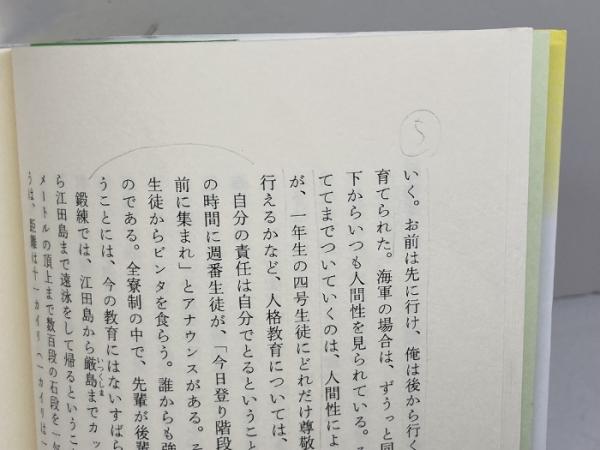 5
いく。お前は先に行け、俺は後から行く
育てられた。海軍の場合は、ずうっと同
下からいつも人間性を見られている。
ててまでついていくのは、人間性によ
が、一年生の四号生徒にどれだけ尊敬
行えるかなど、人格教育については、
自分の責任は自分でとるということ
の時間に週番生徒が、「今日登り階段
前に集まれ」とアナウンスがある。そ
生徒からビンタを食らう。誰からも強
のである。全寮制の中で、先輩が後輩
うことには、今の教育にはないすばら
鍛練では、江田島から厳島までカッ
いつくしま
ら江田島まで遠泳をして帰るということ
メートルの頂上まで数百段の石段を一気
うは、距離は十一カイリ（一カイリは一